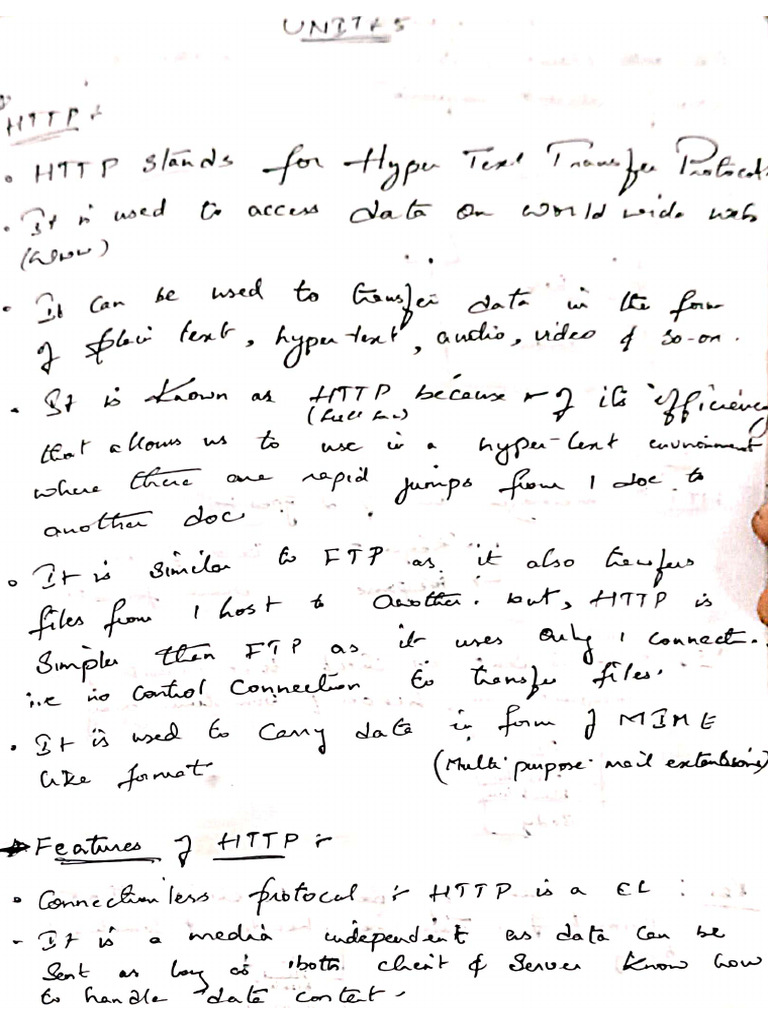 UNIT-5
HTTP :-
• HTTP stands for Hyper Text Transfer Protocol.
• It is used to access data on world wide web
(www)
• It can be used to transfer data in the form
of plain text, hyper-text, audio, video & so-on.
• It is known as HTTP because of its efficiency
(full form)
that allows us to use in a hyper-text environment
where there are rapid jumps from 1 doc to
another doc
• It is similar to FTP as it also transfers
files from 1 host to another. but, HTTP is
simpler than FTP as it uses only 1 connect.
i.e no control connection to transfer files.
• It is used to carry data in form of MIME
like format (Multi purpose mail extensions)
→ Features of HTTP :-
• Connectionless protocol :- HTTP is a CL :
- It is a media independent as data can be
sent as long as both client & server know how
to handle data content.